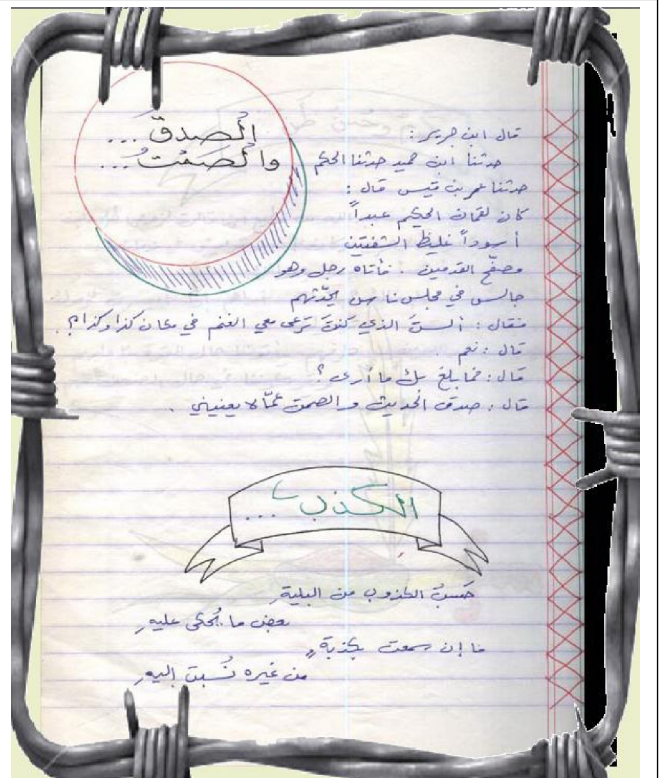 الصدق...
والصمت...
قال ابن جرير:
حدثنا ابن حميد حدثنا الحكم
حدثنا عمر بن قيس قال:
كان لقمان الحكيم عبداً
أسوداً غليظ الشفتين
مصفّح القدمين. فأتاه رجل وهو
جالس في مجلس ناس يحدّثهم
فقال: ألستَ الذي كنتَ ترعى معي الغنم في مكان كذا وكذا؟.
قال: نعم.
قال: فما بلغ بك ما أرى؟
قال: صدق الحديث والصمت عمّا لا يعنيني.
الكذب...
حَسبُ الكذوب من البليةِ
بعض ما يُحكى عليهِ
ما إن سمعت بكذبةٍ
من غيره نُسبت إليهِ